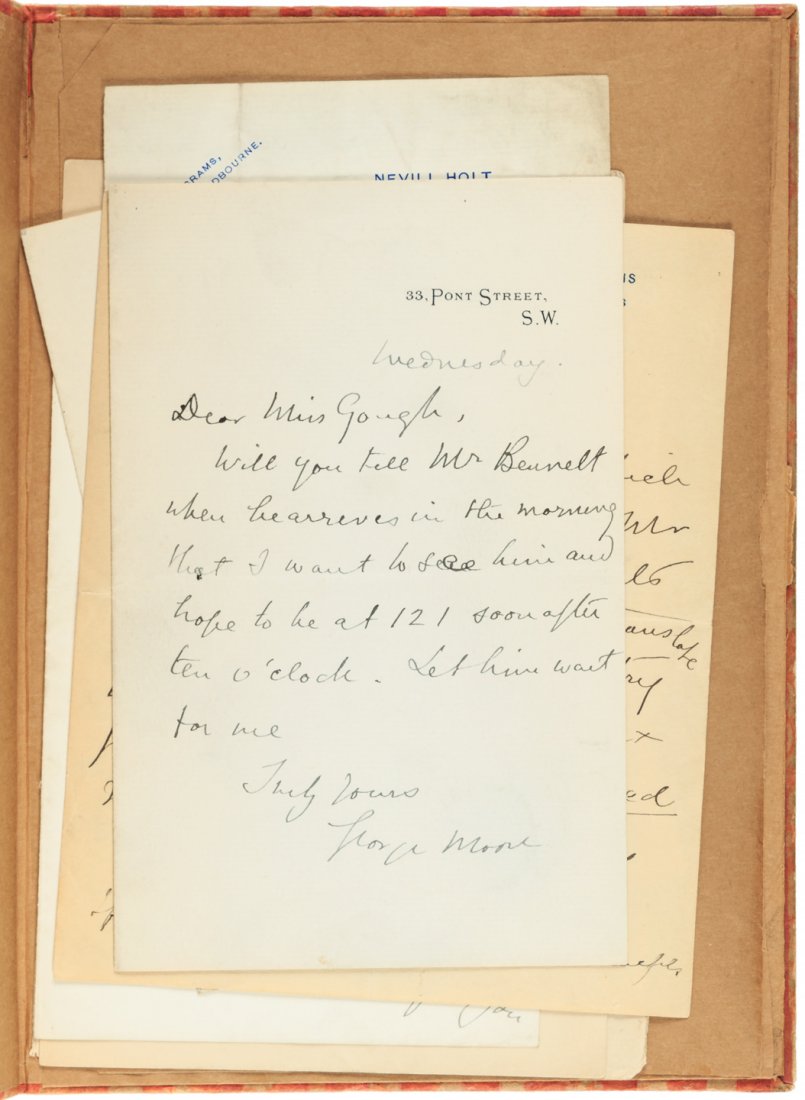 GRAMS,
DBOURNE.
NEVILL HOLT
33, PONT STREET,
S.W.
Wednesday.
Dear Miss Gough,
Will you tell Mr Bennett
when he arrives in the morning
that I want to see him and
hope to be at 121 soon after
ten o'clock. Let him wait
for me
Truly Yours
George Moore
IS
s
Mr
translate
try
ed